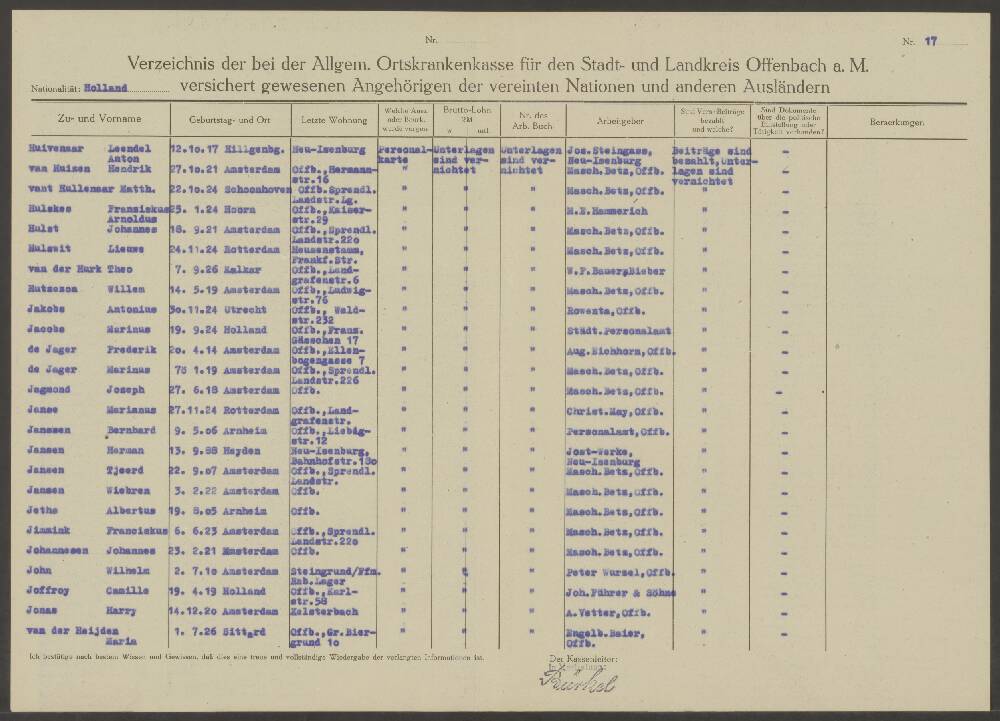 Nr.
Nr. 17
Verzeichnis der bei der Allgem. Ortskrankenkasse für den Stadt- und Landkreis Offenbach a. M.
Nationalität: Holland versichert gewesenen Angehörigen der vereinten Nationen und anderen Ausländern
Zu- und Vorname Geburtstag- und Ort Letzte Wohnung Welche Ausz. oder Beurk. wurde vorgen. Brutto-Lohn RM w. mtl. Nr. des Arb. Buch Arbeitgeber Sind Vers.-Beiträge bezahlt und welche? Sind Dokumente über die politische Einstellung oder Tätigkeit vorhanden? Bemerkungen
Huivenaar Leendel 12.10.17 Hillgenbg. Neu-Isenburg Personal- Unterlagen Unterlagen Jos. Steingass, Beiträge sind -
Anton karte sind ver- sind ver- Neu-Isenburg bezahlt, Unter-
van Huizen Hendrik 27.10.21 Amsterdam Offb., Hermann- " nichtet nichtet Masch. Betz, Offb. lagen sind -
str.16 vernichtet
vant Hullenaar Matth. 22.10.24 Schoonhoven Offb. Sprendl. " " " Masch. Betz, Offb. " -
Landstr. Lg.
Hulskes Fransiskus 25. 1.24 Hoorn Offb., Kaiser- " " " M.E. Hammerich " -
Arnoldus str.29
Hulst Johannes 18. 9.21 Amsterdam Offb., Sprendl. " " " Masch. Betz, Offb. " -
Landstr.220
Hulsmit Lieuwe 24.11.24 Rotterdam Heusenstamm, " " " Masch. Betz, Offb. " -
Frankf. Str.
van der Hurk Theo 7. 9.26 Kalkar Offb., Land- " " " W.F. Bauer, Bieber " -
grafenstr.6
Hutsezon Willem 14. 5.19 Amsterdam Offb., Ludwig- " " " Masch. Betz, Offb. " -
str.76
Jakobs Antonius 30.11.24 Utrecht Offb., Wald- " " " Rowenta, Offb. " -
str.232
Jacobs Marinus 19. 9.24 Holland Offb., Franz. " " " Städt. Personalamt " -
Gässchen 17
de Jager Frederik 20. 4.14 Amsterdam Offb., Ellen- " " " Aug. Eichhorn, Offb. " -
bogengasse 7
de Jager Marinus 1.19 Amsterdam Offb., Sprendl. " " " Masch. Betz, Offb. " -
Landstr.226
Jagmond Joseph 27. 6.18 Amsterdam Offb. " " " Masch. Betz, Offb. " -
Janse Marianus 27.11.24 Rotterdam Offb., Land- " " " Christ. May, Offb. " -
grafenstr.
Janssen Bernhard 9. 5.06 Arnheim Offb., Liebig- " " " Personalamt, Offb. " -
str.12
Jansen Herman 13. 9.88 Heyden Neu-Isenburg, " " " Jost-Werke, " -
Bahnhofstr.130 Neu-Isenburg
Jansen Tjeerd 22. 9.07 Amsterdam Offb., Sprendl. " " " Masch. Betz, Offb. " -
Landstr.
Jansen Wiebren 3. 2.22 Amsterdam Offb. " " " Masch. Betz, Offb. " -
Jeths Albertus 19. 8.05 Arnheim Offb. " " " Masch. Betz, Offb. " -
Jimmink Franciskus 6. 6.23 Amsterdam Offb., Sprendl. " " " Masch. Betz, Offb. " -
Landstr.220
Johannesen Johannes 23. 2.21 Amsterdam Offb. " " " Masch. Betz, Offb. " -
John Wilhelm 2. 7.10 Amsterdam Steingrund/Ffm. " " " Peter Wurzel, Offb. " -
Rab. Lager
Joffroy Camille 19. 4.19 Holland Offb., Karl- " " " Joh. Führer & Söhne " -
str.58
Jonas Harry 14.12.20 Amsterdam Kelsterbach " " " A. Vetter, Offb. " -
van der Heijden 1. 7.26 Sittard Offb., Gr. Bier- " " " Engelb. Baier, " -
Maria grund 10 Offb.
Ich bestätige nach bestem Wissen und Gewissen, daß dies eine treue und vollständige Wiedergabe der verlangten Informationen ist.
Der Kassenleiter: